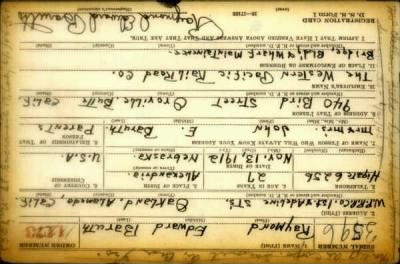 SERIAL NUMBER
1. NAME (Print)
ORDER NUMBER
3596
Raymond Edward Baruth
1273
2. ADDRESS (Print)
W.P.R.R.Co. 1st. Adeline STS. Oakland, Alameda, Calif.
3. TELEPHONE
4. AGE IN YEARS
5. PLACE OF BIRTH
6. COUNTRY OF CITIZENSHIP
Higate 6256
27
Alexandria
DATE OF BIRTH
Nov. 13, 1912
Nebraska
U.S.A.
7. NAME OF PERSON WHO WILL ALWAYS KNOW YOUR ADDRESS
8. RELATIONSHIP OF THAT PERSON
Mr. & Mrs. John E. Baruth
Parents
9. ADDRESS OF THAT PERSON
940 Bird STREET Oroville, Butte Calif.
10. EMPLOYER'S NAME
The Western Pacific Rail Road Co.
11. PLACE OF EMPLOYMENT OR BUSINESS
Bridge, Bld'g & Wharf Maintainence
I AFFIRM THAT I HAVE VERIFIED ABOVE ANSWERS AND THAT THEY ARE TRUE.
REGISTRATION CARD
D. S. S. Form 1
16—17105
Raymond Edward Baruth